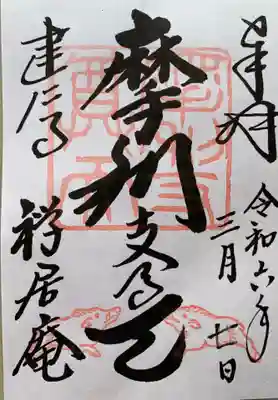 奉拝
令和六年
三月廿日
摩利支尊天
建仁寺
禅居庵